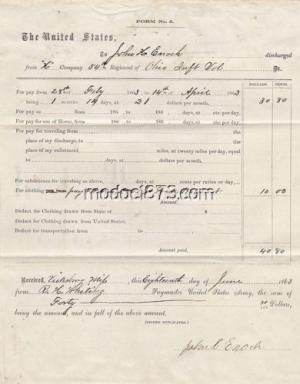 FORM No. 5.
The United States,
To John H. Enoch discharged
from "K" Company, 54th Regiment of Ohio Inft Vol Dr.
DOLLARS CENTS
For pay from 28th Feby 1863 to 14th April 1863
being 1 months 14 days, at 21 dollars per month, 30 80
For pay from 186 to 186 at cts. per day.
For pay for use of Horse, from 186 to 186 at cts. per day,
For pay for traveling from the
place of my discharge, to the
place of my enlistment, miles, at twenty miles per day, equal
to days, at dollars per month,
For subsistence for traveling as above, days, at cents per ration or day,
For clothing 10 00
Amount,
Deduct for Clothing drawn from State of $
Deduct for Clothing drawn from United States,
Deduct for transportation from to
Amount paid, 40 80
Received, Vicksburg Miss, this Eighteenth day of June 1863
from Paymaster United States Army, the sum of
Forty 80 Dollars,
being the amount, and in full of the above account.
[SIGNED DUPLICATES.]
John H Enoch
modoc1873.com